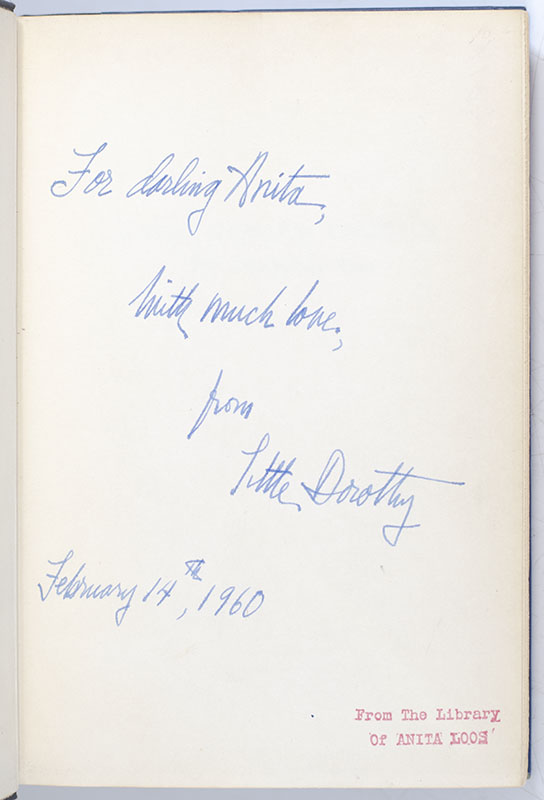 For darling Anita,
With much love,
from
Little Dorothy
February 14th, 1960
From The Library
Of ANITA LOOS